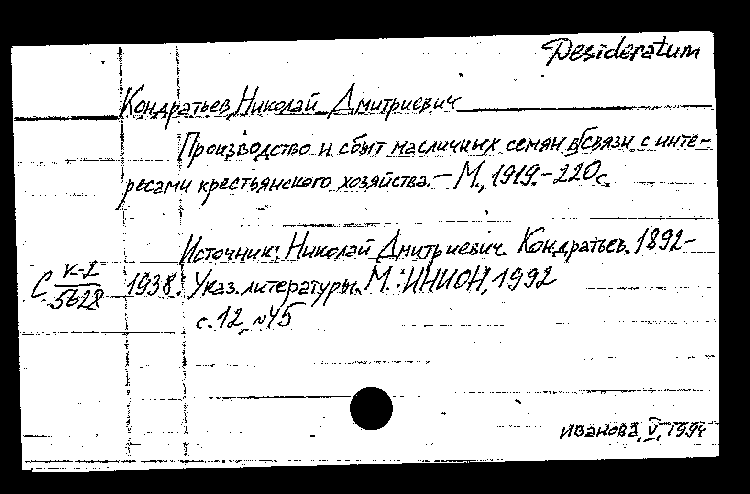 Desideratum
Кондратьев, Николай Дмитриевич
Производство и сбыт масличных семян в связи с инте-
ресами крестьянского хозяйства. – М., 1919. – 220 с.
Источник: Николай Дмитриевич Кондратьев. 1892-
С V-2/5628 1938: Указ. литературы. М.: ИНИОН, 1992
с. 12, №45
Иванова, V, 1994